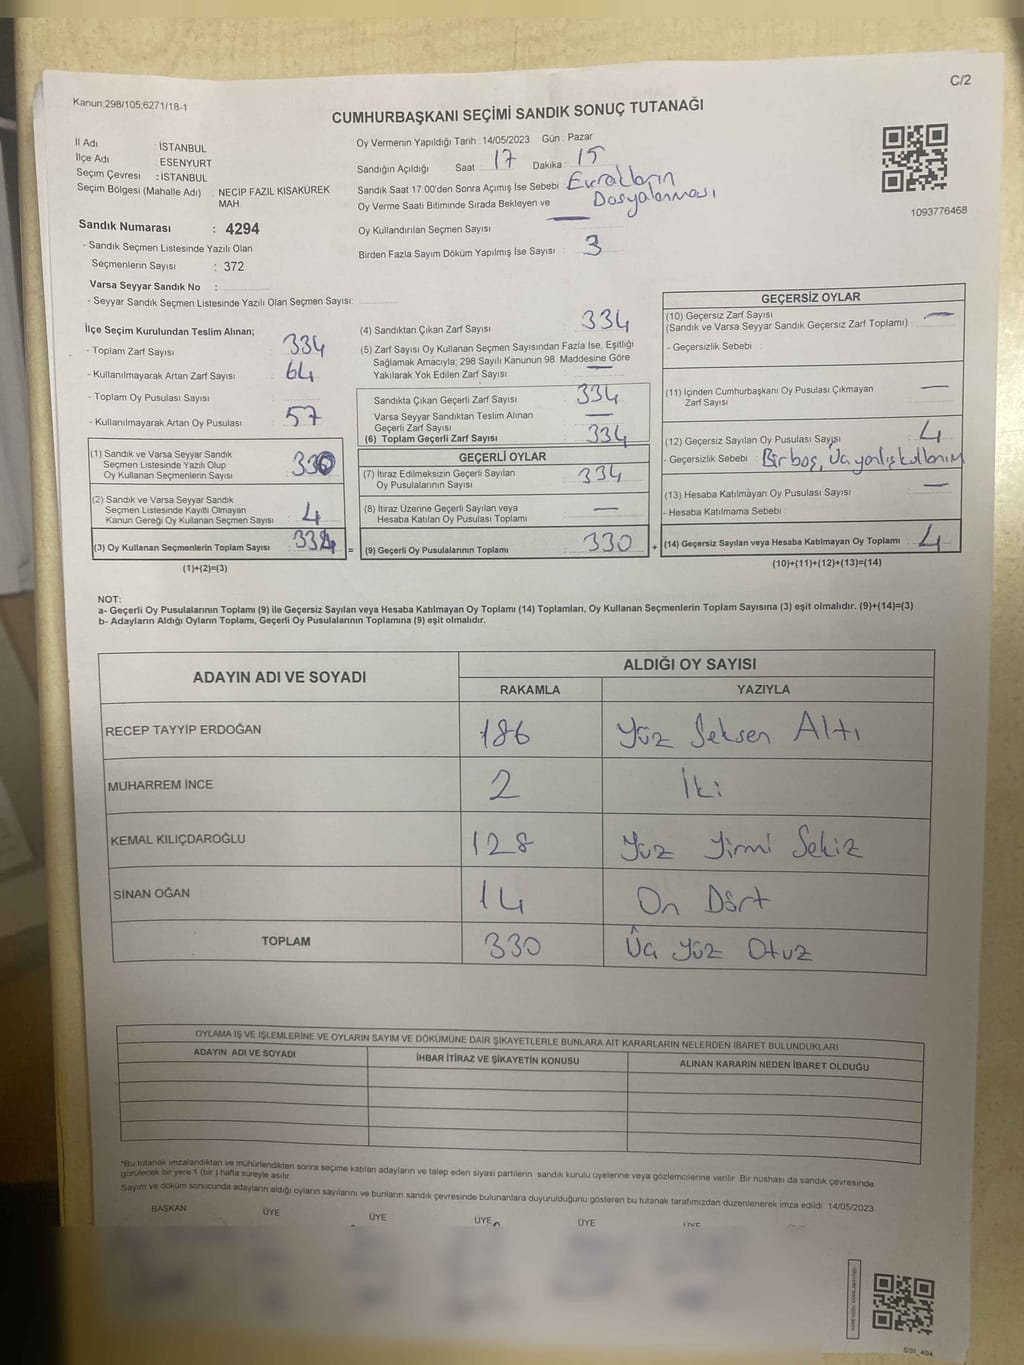 C/2
Kanun:298/105,6271/18-1
CUMHURBAŞKANI SEÇİMİ SANDIK SONUÇ TUTANAĞI
İl Adı : İSTANBUL
İlçe Adı : ESENYURT
Seçim Çevresi : İSTANBUL
Seçim Bölgesi (Mahalle Adı) : NECİP FAZIL KISAKÜREK
MAH
Sandık Numarası : 4294
- Sandık Seçmen Listesinde Yazılı Olan
Seçmenlerin Sayısı : 372
Varsa Seyyar Sandık No :
- Seyyar Sandık Seçmen Listesinde Yazılı Olan Seçmen Sayısı:
Oy Vermenin Yapıldığı Tarih : 14/05/2023 Gün : Pazar
Sandığın Açıldığı Saat 17 Dakika : 15
Sandık Saat 17:00'den Sonra Açımış İse Sebebi : Evrakların
Dosyalanması
Oy Verme Saati Bitiminde Sırada Bekleyen ve
Oy Kullandırılan Seçmen Sayısı :
Birden Fazla Sayım Döküm Yapılmış İse Sayısı : 3
1093776468
İlçe Seçim Kurulundan Teslim Alınan;
- Toplam Zarf Sayısı : 334
- Kullanılmayarak Artan Zarf Sayısı : 64
- Toplam Oy Pusulası Sayısı :
- Kullanılmayarak Artan Oy Pusulası : 57
(1) Sandık ve Varsa Seyyar Sandık
Seçmen Listesinde Yazılı Olup
Oy Kullanan Seçmenlerin Sayısı 330
(2) Sandık ve Varsa Seyyar Sandık
Seçmen Listesinde Kayıtlı Olmayan
Kanun Gereği Oy Kullanan Seçmen Sayısı 4
(3) Oy Kullanan Seçmenlerin Toplam Sayısı : 334 =
(1)+(2)=(3)
(4) Sandıktan Çıkan Zarf Sayısı : 334
(5) Zarf Sayısı Oy Kullanan Seçmen Sayısından Fazla İse, Eşitliği
Sağlamak Amacıyla; 298 Sayılı Kanunun 98. Maddesine Göre
Yakılarak Yok Edilen Zarf Sayısı : —
Sandıkta Çıkan Geçerli Zarf Sayısı : 334
Varsa Seyyar Sandıktan Teslim Alınan
Geçerli Zarf Sayısı : —
(6) Toplam Geçerli Zarf Sayısı : 334
GEÇERLİ OYLAR
(7) İtiraz Edilmeksizin Geçerli Sayılan
Oy Pusulalarının Sayısı : 334
(8) İtiraz Üzerine Geçerli Sayılan veya
Hesaba Katılan Oy Pusulası Toplamı : —
(9) Geçerli Oy Pusulalarının Toplamı : 330 +
GEÇERSİZ OYLAR
(10) Geçersiz Zarf Sayısı
(Sandık ve Varsa Seyyar Sandık Geçersiz Zarf Toplamı) : —
- Geçersizlik Sebebi :
(11) İçinden Cumhurbaşkanı Oy Pusulası Çıkmayan
Zarf Sayısı : —
(12) Geçersiz Sayılan Oy Pusulası Sayısı : 4
- Geçersizlik Sebebi : Bir boş, Üç yanlış kullanım
(13) Hesaba Katılmayan Oy Pusulası Sayısı : —
- Hesaba Katılmama Sebebi :
(14) Geçersiz Sayılan veya Hesaba Katılmayan Oy Toplamı : 4
(10)+(11)+(12)+(13)=(14)
NOT:
a- Geçerli Oy Pusulalarının Toplamı (9) ile Geçersiz Sayılan veya Hesaba Katılmayan Oy Toplamı (14) Toplamları, Oy Kullanan Seçmenlerin Toplam Sayısına (3) eşit olmalıdır. (9)+(14)=(3)
b- Adayların Aldığı Oyların Toplamı, Geçerli Oy Pusulalarının Toplamına (9) eşit olmalıdır.
ADAYIN ADI VE SOYADI ALDIĞI OY SAYISI
RAKAMLA YAZIYLA
RECEP TAYYİP ERDOĞAN 186 Yüz Seksen Altı
MUHARREM İNCE 2 İki
KEMAL KILIÇDAROĞLU 128 Yüz Yirmi Sekiz
SİNAN OĞAN 14 On Dört
TOPLAM 330 Üç Yüz Otuz
OYLAMA İŞ VE İŞLEMLERİNE VE OYLARIN SAYIM VE DÖKÜMÜNE DAİR ŞİKAYETLERLE BUNLARA AİT KARARLARIN NELERDEN İBARET BULUNDUKLARI
ADAYIN ADI VE SOYADI İHBAR İTİRAZ VE ŞİKAYETİN KONUSU ALINAN KARARIN NEDEN İBARET OLDUĞU
*Bu tutanak imzalandıktan ve mühürlendikten sonra seçime katılan adayların ve talep eden siyasi partilerin sandık kurulu üyelerine veya gözlemcilerine verilir. Bir nüshası da sandık çevresinde
görülecek bir yere 1 (bir ) hafta süreyle asılır.
Sayım ve döküm sonucunda adayların aldığı oyların sayılarını ve bunların sandık çevresinde bulunanlara duyurulduğunu gösteren bu tutanak tarafımızdan düzenlenerek imza edildi. 14/05/2023
BAŞKAN ÜYE ÜYE ÜYE ÜYE ÜYE
SSI_404